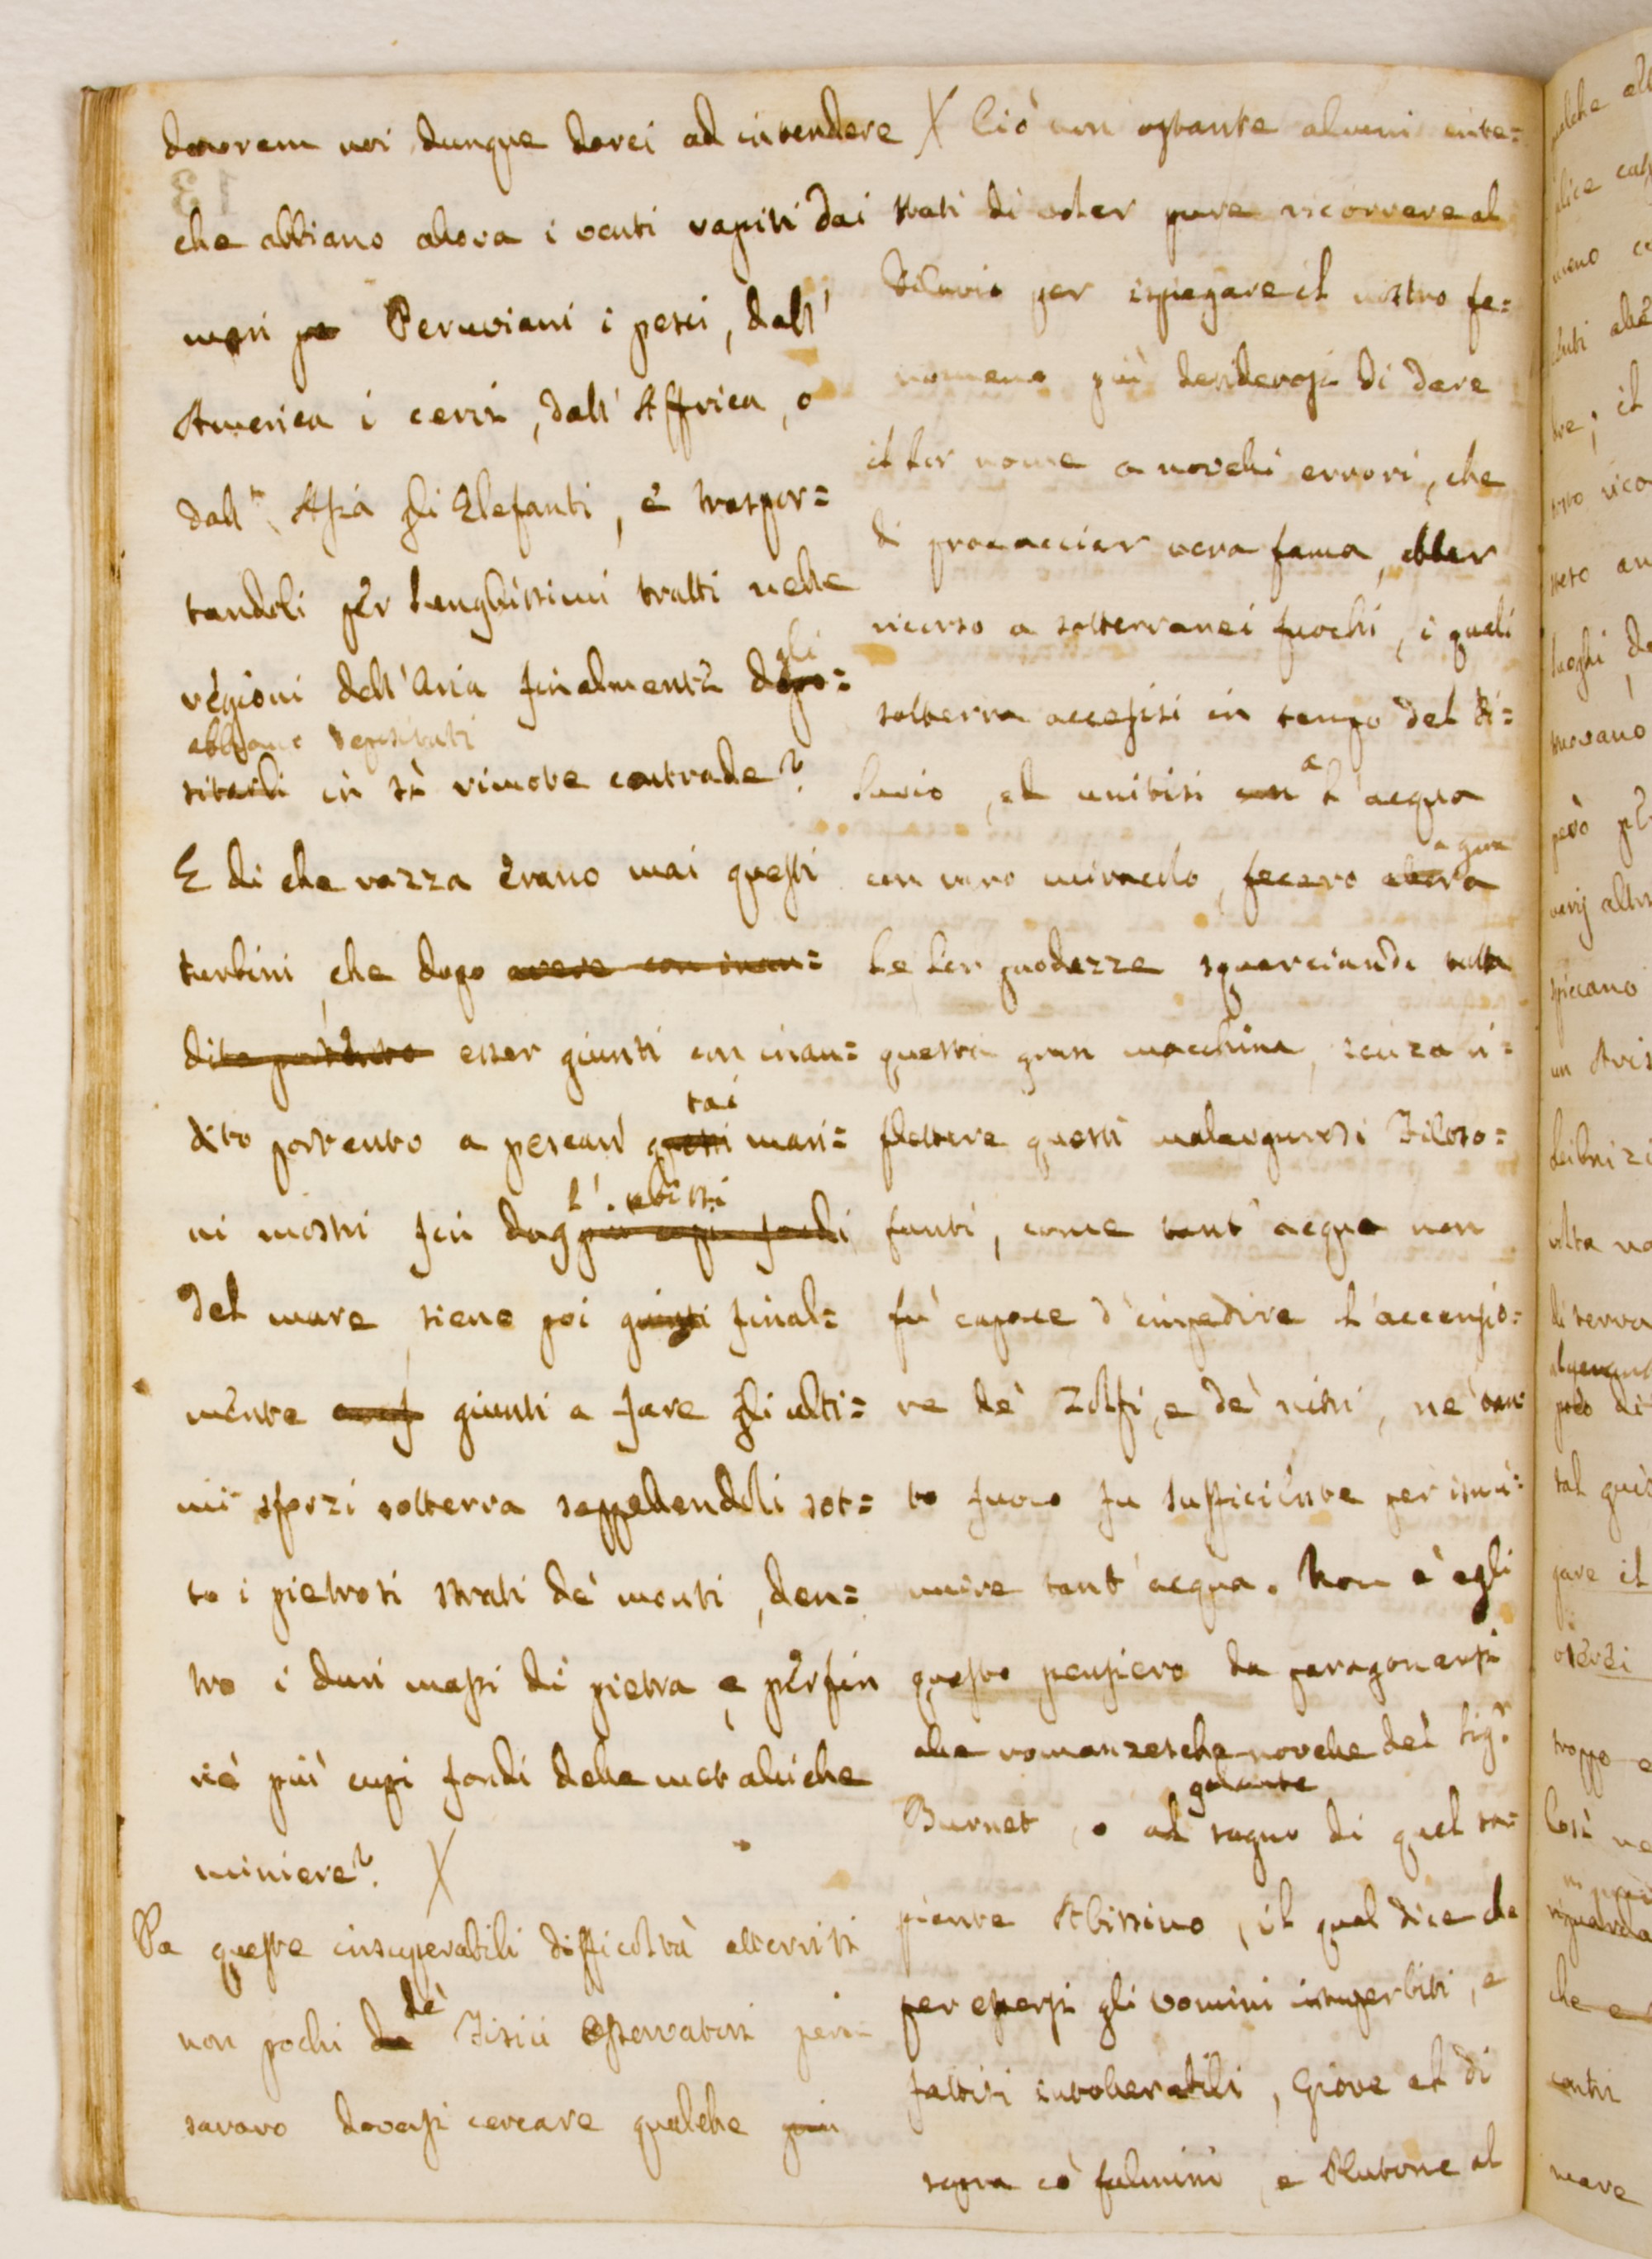 dovrem noi dunque darci ad intendere
che abbiano allora i venti rapiti dai
mari Peruviani i pesci, dall'
America i cervi, dall'Affrica, o
dall' Asia gli Elefanti, e traspor=
tandoli per lunghissimi tratti nelle
gli
regioni dell'aria finalmente depo=
abbiano depositati
sitarli in sì rimote contrade?
E di che razza erano mai questi
turbini, che dopo avere con inau=
dito portento esser giunti con inau=
tai
dito portento a pescar questi mari=
l'. abissi
ni mostri fin dag più cupi fondi
del mare, siene poi giunti final=
mente giunti a fare gli ulti=
mi sforzi sotterra seppellendoli sot=
to i pietrosi strati de' monti, den=
tro i duri massi di pietra, e perfin
ne' più cupi fondi delle metalliche
miniere? X
Da queste insuperabili difficoltà atterriti
de'
non pochi da Fisici osservatori pen=
sarono doversi cercare qualche più
X Ciò non ostante alcuni inte=
stati di voler pure ricorrere al
Diluvio per ispiegare il nostro fe=
nomeno più desiderosi di dare
il lor nome a novelli errori, che
di procacciar vera fama, ebber
ricorso a sotterranei fuochi, i quali
sotterra accesisi in tempo del Di=
a
luvio, ed unitisi con l'acqua
agua
con raro miracolo, fecero allora
le lor prodezze squarciando tutta
questa gran macchina, senza ri=
flettere questi malaugurosi Filoso=
fanti, come tant'acqua non
fu capace d'impedire l'accensio=
ne de' Zolfi, e de' nitri, ne' tan=
to fuoco fu sufficiente per ismi=
nuire tant'acqua. Non è egli
questo pensiero da paragonarsi
alle romanzesche novelle del Sig.r
galante
Burnet, o al sogno di quel sa=
piente Abissino, il qual dice che
per essersi gli uomini insuperbiti, e
fattisi intollerabili, Giove al di
sopra co' fulmini, e Plutone al